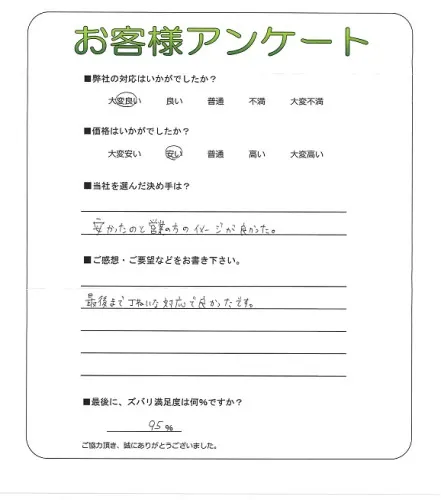 お客様アンケート
■弊社の対応はいかがでしたか？
大変良い 良い 普通 不満 大変不満
■価格はいかがでしたか？
大変安い 安い 普通 高い 大変高い
■当社を選んだ決め手は？
安かったのと営業の方のイメージが良かった。
■ご感想・ご要望などをお書き下さい。
最後まで丁ねいな対応で良かったです。
■最後に、ズバリ満足度は何%ですか？
95%
ご協力頂き、誠にありがとうございました。